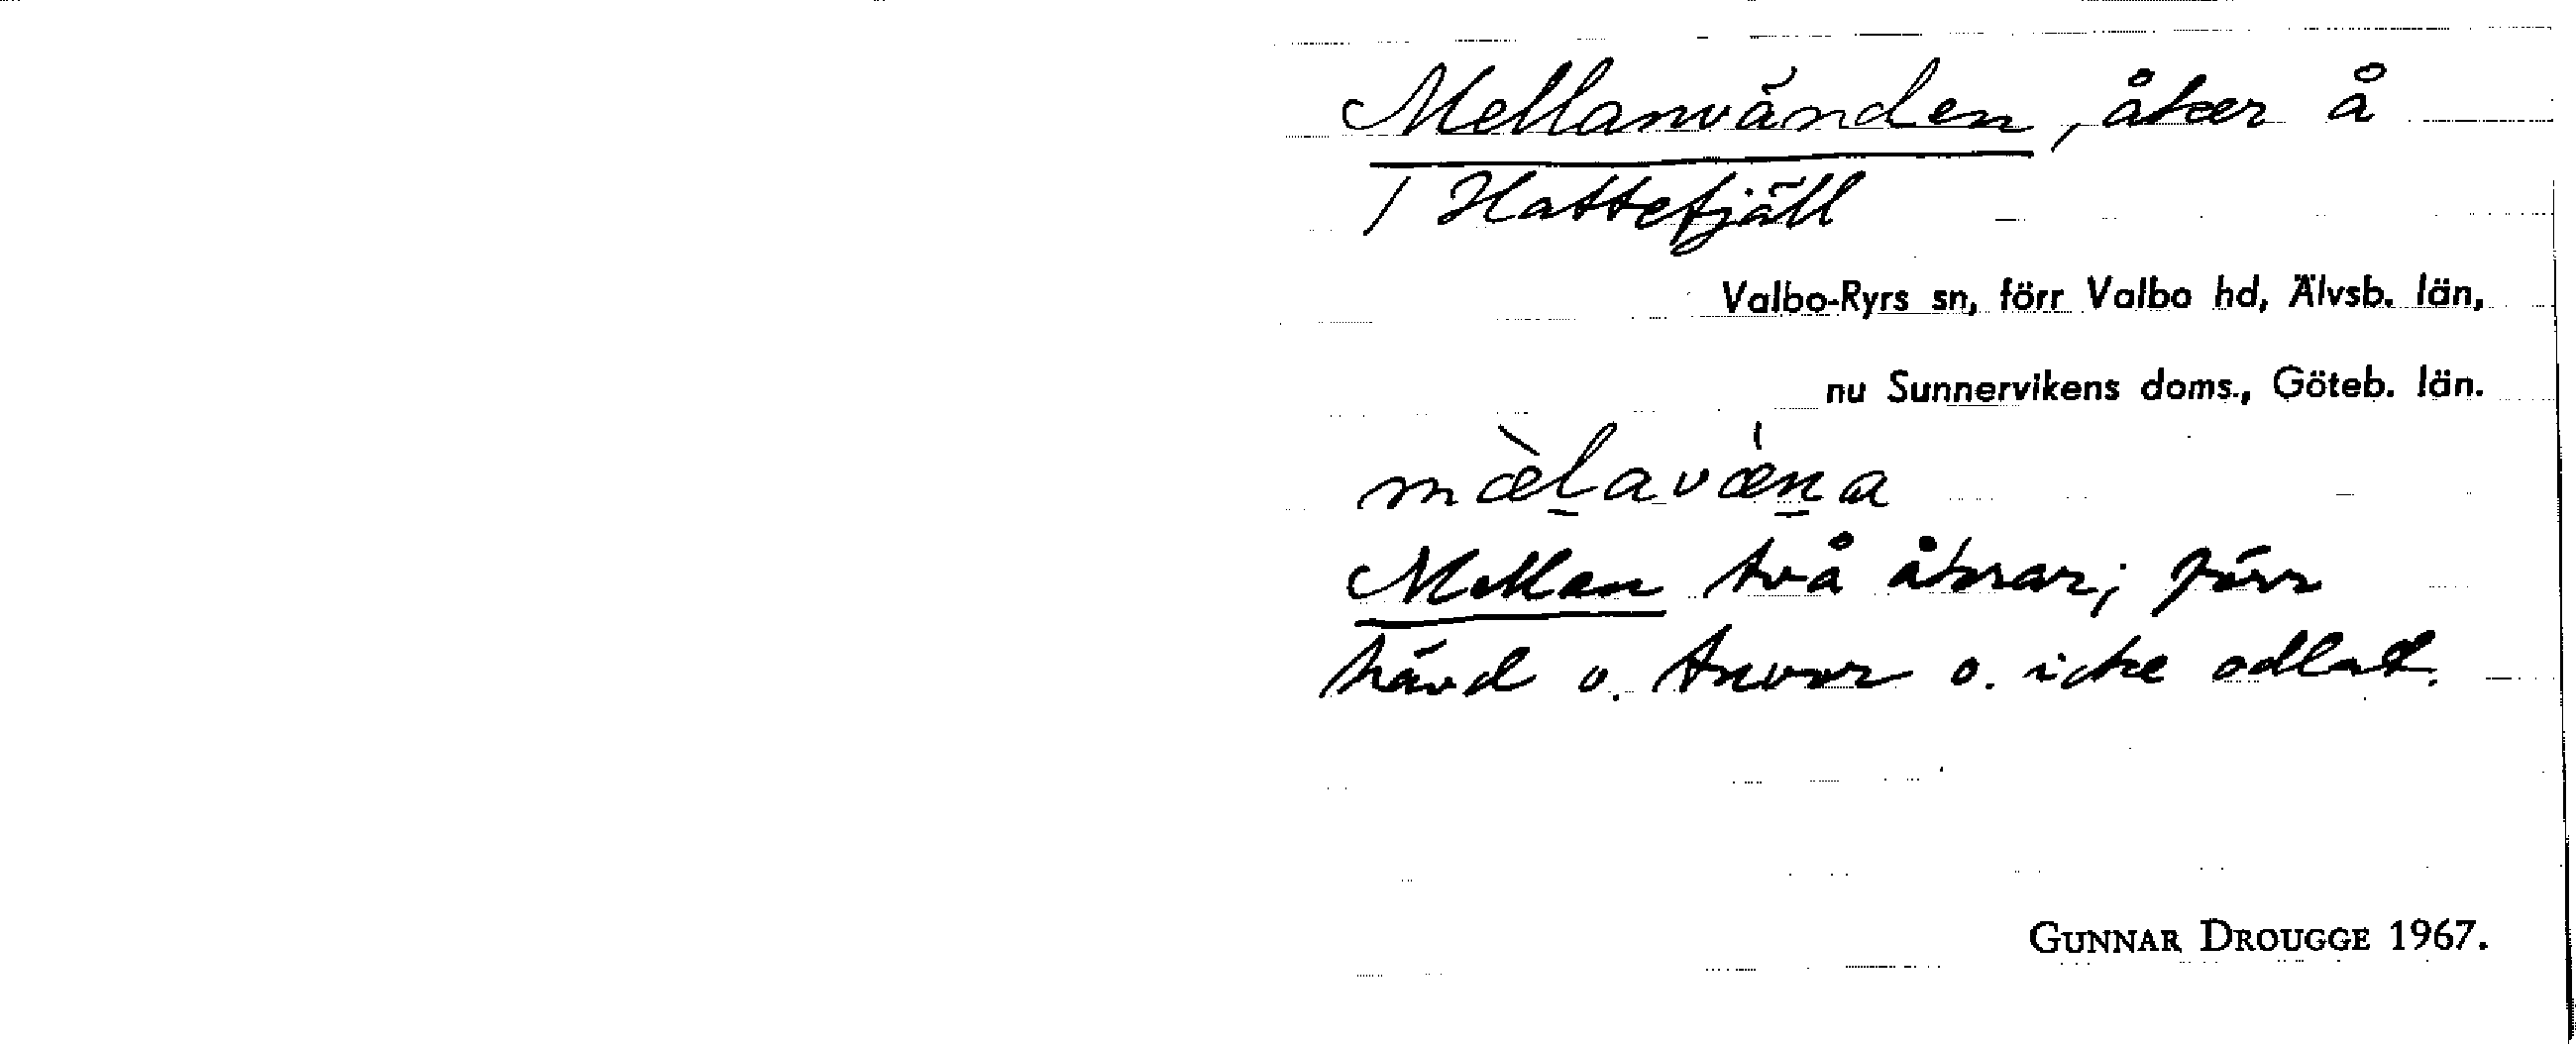 Mellanvänden, åker å
/ Hattefjäll
Valbo-Ryrs sn, förr Valbo hd, Älvsb. län,
nu Sunnervikens doms., Göteb. län.
mæ̀l̠avæ̍n̠a
Mellan två åkrar; förr
hävd o. tuvor o. icke odlat.
GUNNAR DROUGGE 1967.